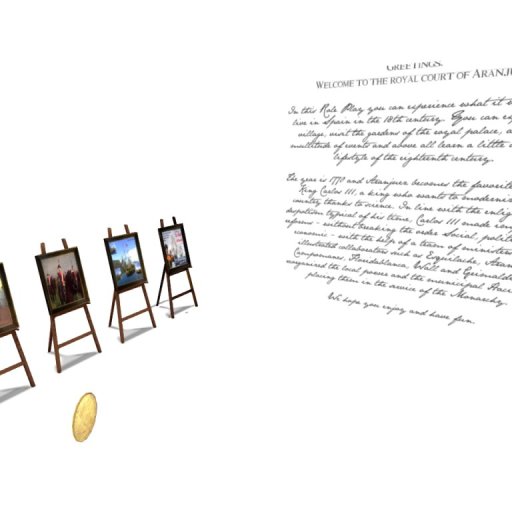 GREETINGS.
WELCOME TO THE ROYAL COURT OF ARANJU
In this Role Play you can experience what it
live in Spain in the 18th century. You can
village, visit the gardens of the royal palace,
multitude of events and above all learn a little
lifestyle of the eighteenth century.
The year is 1770 and Aranjuez becomes the favorite
King Carlos III, a king who wants to modernis
country thanks to science. In line with the enlig
despotism typical of his time, Carlos III made
reforms - without breaking the order Social, polit
economic - with the help of a team of minister
illustrated collaborators such as Esquilache, Aran
Campomanes, Floridablanca, Wall and Grimalde
reorganized the local power and the municipal Haci
placing them in the service of the Monarchy.
We hope you enjoy and have fun.